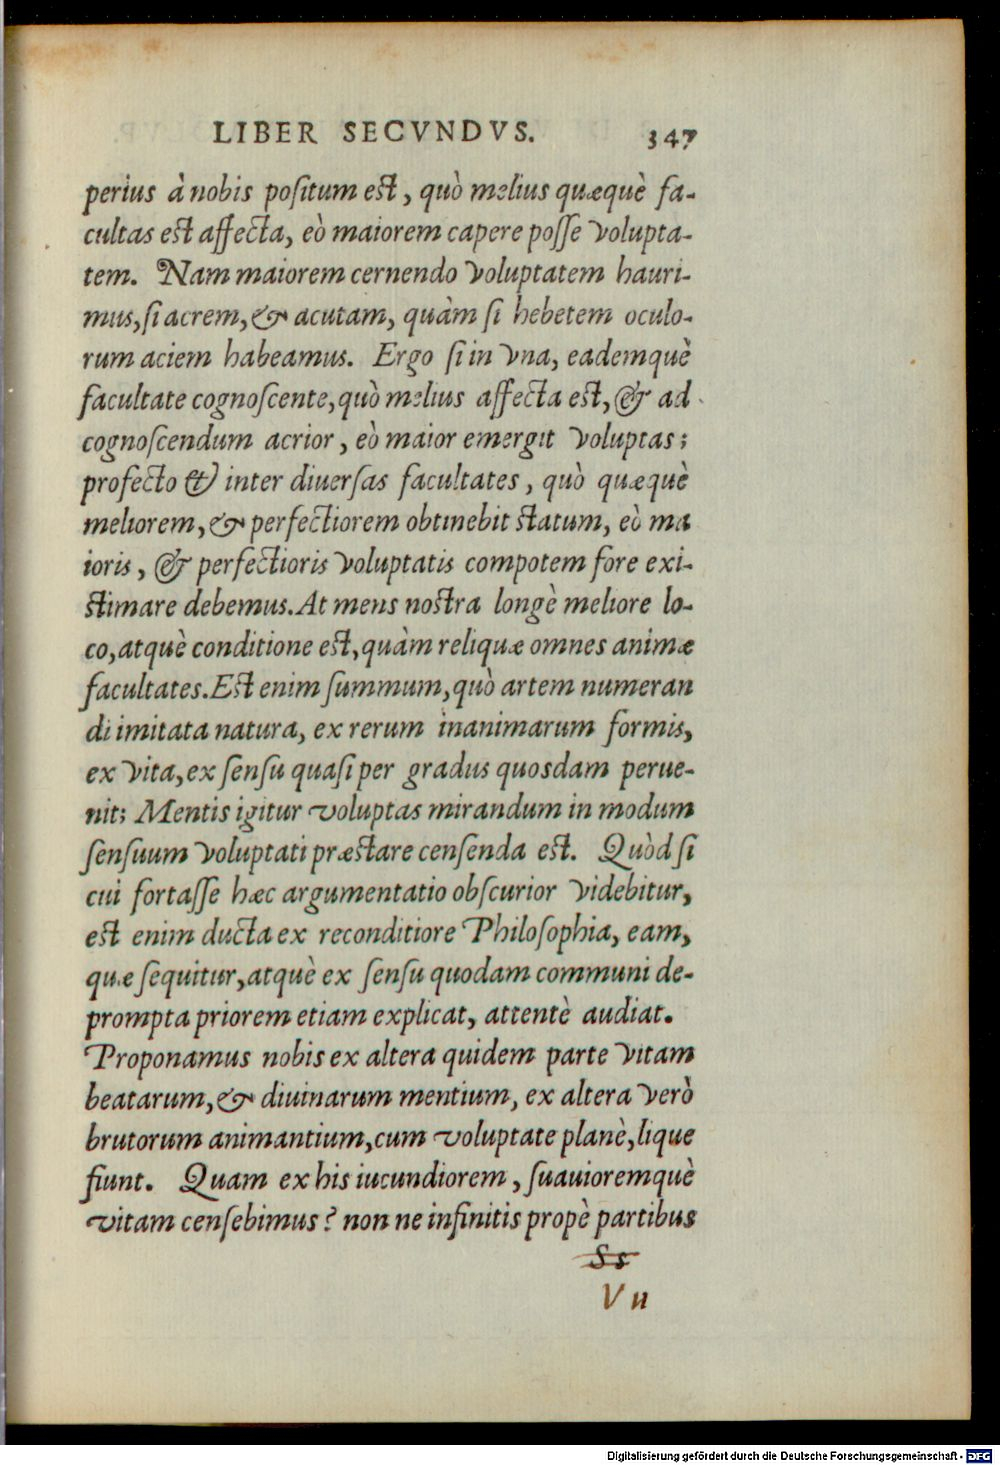 LIBER SECVNDVS. 347
perius à nobis poſitum eſt, quò melius quæquè fa-
cultas eſt affecta, eò maiorem capere poſſe volupta-
tem. Nam maiorem cernendo voluptatem hauri-
mus, ſi acrem, & acutam, quàm ſi hebetem oculo-
rum aciem habeamus. Ergo ſi in vna, eademquè
facultate cognoſcente, quò melius affecta eſt, & ad
cognoſcendum acrior, eò maior emergit voluptas;
profecto & inter diuerſas facultates, quò quæquè
meliorem, & perfectiorem obtinebit ſtatum, eò ma
ioris, & perfectioris voluptatis compotem fore exi-
ſtimare debemus. At mens noſtra longè meliore lo-
co, atquè conditione eſt, quàm reliquæ omnes animæ
facultates. Eſt enim ſummum, quò artem numeran
di imitata natura, ex rerum inanimarum formis,
ex vita, ex ſenſu quaſi per gradus quosdam perue-
nit; Mentis igitur voluptas mirandum in modum
ſenſuum voluptati præſtare cenſenda eſt. Quòd ſi
cui fortaſſe hæc argumentatio obſcurior videbitur,
eſt enim ducta ex reconditiore Philoſophia, eam,
quæ ſequitur, atquè ex ſenſu quodam communi de-
prompta priorem etiam explicat, attentè audiat.
Proponamus nobis ex altera quidem parte vitam
beatarum, & diuinarum mentium, ex altera verò
brutorum animantium, cum voluptate planè, lique
fiunt. Quam ex his iucundiorem, ſuauioremquè
vitam cenſebimus? non ne infinitis propè partibus
Ss
V u
Digitalisierung gefördert durch die Deutsche Forschungsgemeinschaft - DFG